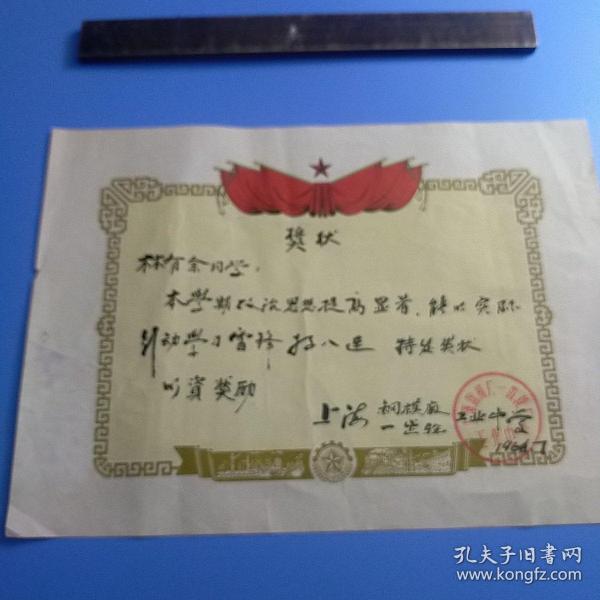 奬状
林有余同学:
本學期政治思想提高显著,能以实际
行动學习雷锋 好八连 特发奖状
以資奬励
上海 钢模廠 工业中学
一
1964.7
孔夫子旧书网
www.kongfz.com